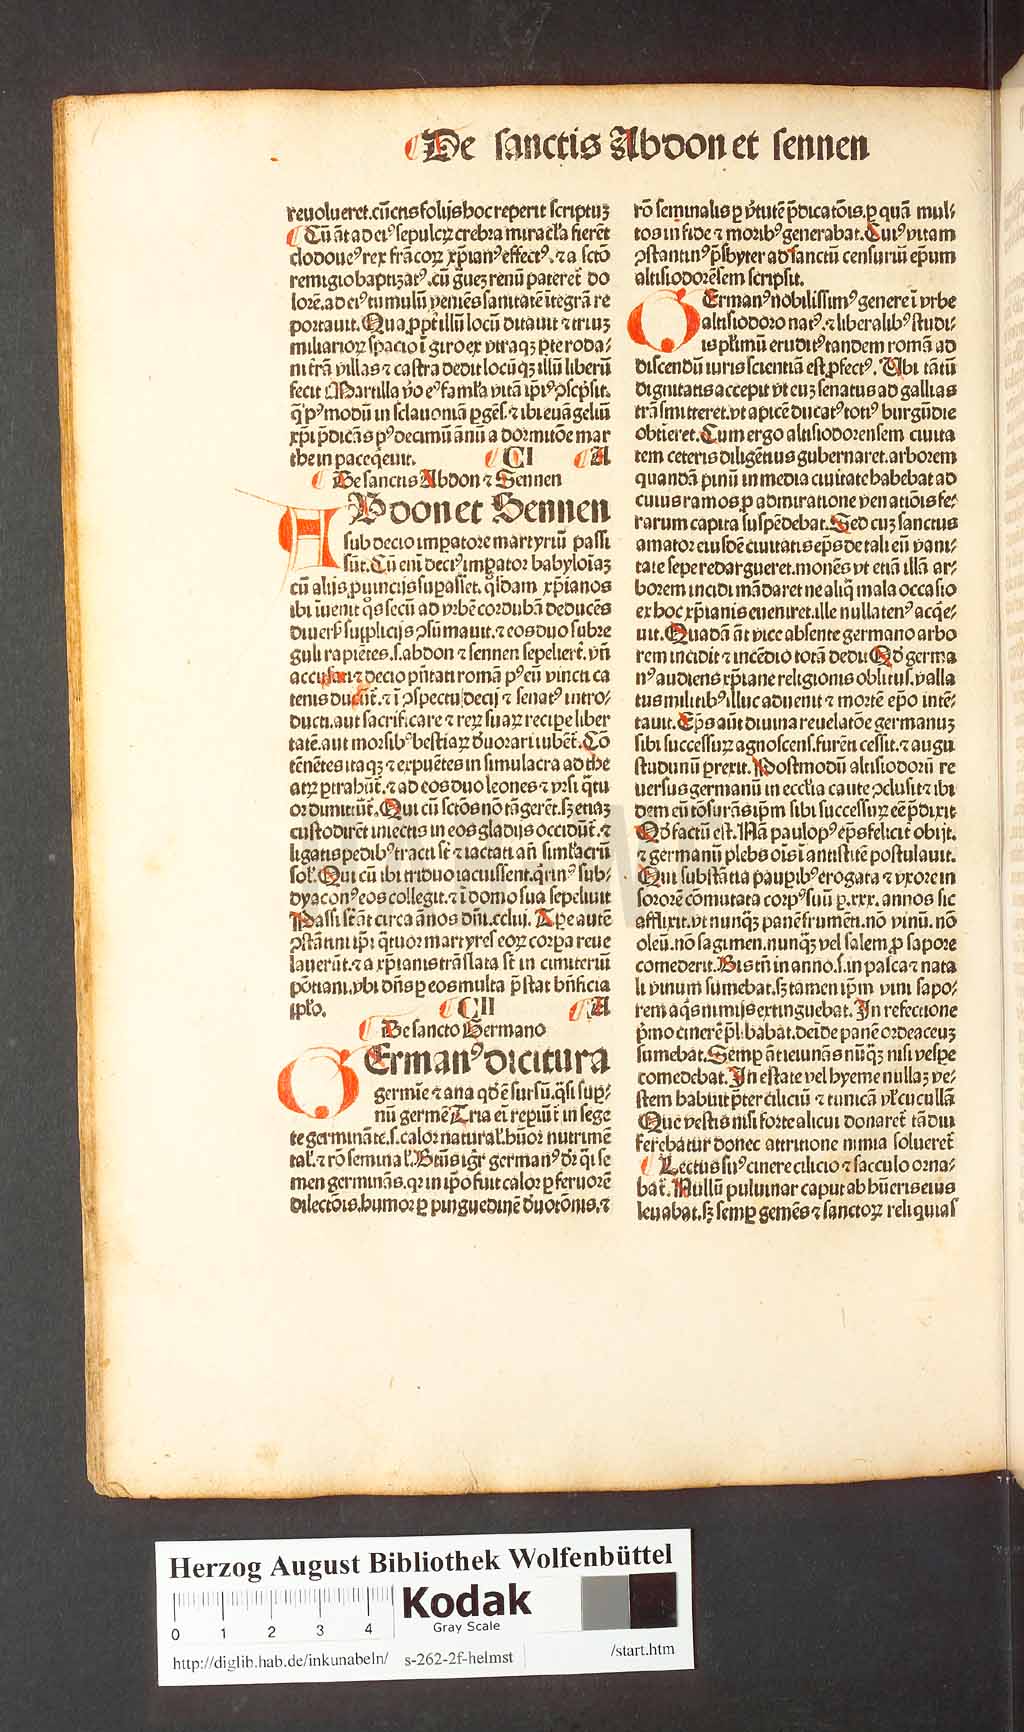 De sanctis Abdon et sennen
reuolueret.cūctis folijs hoc reperit scriptuꝫ
Cū āt ad eiꝰ sepulcꝝ crebra miracl'a fierēt
clodoueꝰ rex frācoꝝ xp̄ianꝰ effectꝰ.⁊ a sctō
remigio baptizatꝰ.cū gͣueꝫ renū pateret' do
lorē.ad eiꝰ tumulū veniēs sanitatē ītegrā re
portauit.Qua ꝓpt' illū locū ditauit ⁊ triuꝫ
miliarioꝝ spacio ī giro ex vtraqꝫ ꝑte roda-
ni trā villas ⁊ castra dedit locūqꝫ illū liberū
fecit Martilla v̄o eꝰ famĺa vitā ip̄iꝰ ꝯscp̄sit.
q̄ pꝰmodū in sclauoniā ꝑgēs.⁊ ibi euāgeliū
xp̄i p̄dicās pꝰ decimū ānū a dormitōe mar
the in pace q̄euit. CI A
De sanctis Abdon ⁊ Sennen
ABdon et Sennen
sub decio impatore martyriū passi
sūt.Cū eni deciꝰ impator babyloīaꝫ
cū alijs ꝓuincijs supasset. q̄sdam xp̄ianos
ibi īuenit q̄s secū ad vrbē cordubā deducēs
diuers' supplicijs ꝯsūmauit.⁊ eos duo subre
guli rapiētes.s.abdon ⁊ sennen sepelierūt.vn̄
accusati ⁊ decio pn̄tati romā pꝰ eū vincti ca
tenis ducūt'.⁊ ī ꝯspectu decij ⁊ senatꝰ intro-
ducti.aut sacrificare ⁊ reꝝ suaꝝ recipe liber
tatē.aut morsibꝰ bestiaꝝ d'uorari iubēt'.Cō
tēnētes itaqꝫ ⁊ expuētes in simulacra ad the
atꝝ ptrahūt'.⁊ ad eos duo leones ⁊ vrsi q̄tu
or dimittūt'.Qui cū sctōs nō tāgerēt.sꝫ etiaꝫ
custodirēt iniectis in eos gladijs occidūt'.⁊
ligatis pedibꝰ tracti st̄ ⁊ iactati an̄ simlacrū
sol'.Qui cū ibi triduo iacuissent.q̄rinꝰ sub-
dyaconꝰ eos collegit.⁊ ī domo sua sepeliuit
Passi st̄ āt circa ānos dn̄i.ccliij. Tpe autē
ꝯstātini ip̄i q̄tuor martyres eoꝝ corpa reue
lauerūt.⁊ a xp̄ianis trāslata st̄ in cimiteriū
pōtiani.vbi dn̄s ꝑ eos multa p̄stat bn̄ficia
ip̄lo. CII A
De sancto Germano
GErmanꝰ dicitur a
germīe ⁊ ana qd̄ ē sursū.q̄si sup-
nū germē.Tria ei repiūt' in sege
te germināte.s.calor natural'.hūor nutrimē
tal'.⁊ rō seminal'.Btūs igr̄ germanꝰ dr̄ q̄si se
men germinās.qꝛ in ip̄o fuit calor ꝑ feruorē
dilectōis.humor ꝑ pinguedinē d'uotōnis.⁊
rō seminalis ꝑ v̄tutē p̄dicatōis.ꝑ quā mul-
tos in fide ⁊ moribꝰ generabat.Cuiꝰ vitam
ꝯstantinꝰ p̄sbyter ad sanctū censuriū ep̄um
altisiodorēsem scripsit.
GErmanꝰ nobilissimꝰ genere ī vrbe
altisiodoro natꝰ.⁊ liberalibꝰ studi-
is plīmū eruditꝰ tandem romā ad
discendū iuris scientiā est ꝓfectꝰ. Ubi tātū
dignitatis accepit vt euꝫ senatus ad gallias
trāsmitteret.vt apicē ducatꝰ totiꝰ burgūdie
obtīeret.Cum ergo altisiodorensem ciuita
tem ceteris diligētius gubernaret.arborem
quandā pinū in media ciuitate habebat ad
cuius ramos ꝑ admiratione venatiōis fe-
rarum capita suspēdebat.Sed cuꝫ sanctus
amator eiusdē ciuitatis ep̄s de tali eū vani-
tate sepe redargueret.monēs vt etiā illā ar-
borem incidi mādaret ne aliq̄ mala occasio
ex hoc xp̄ianis eueniret.ille nullatenꝰ acq̄e-
uit.Quadā āt vice absente germano arbo
rem incidit ⁊ incēdio totā dedit Qd̄ germa
nꝰ audiens xp̄iane religionis oblitus.valla
tus militibꝰ illuc aduenit ⁊ mortē ep̄o intē-
tauit.Ep̄s aūt diuina reuelatōe germanuꝫ
sibi successuꝝ agnoscens.furēti cessit.⁊ augu
studunū ꝑrexit. Postmodū altisiodorū re
uersus germanū in ecclīa caute ꝯclusit ⁊ ibi
dem eū tōsurās ip̄m sibi successuꝝ eē p̄dixit
Qd̄ factū est.Nā paulopꝰ ep̄s felicit' obijt.
⁊ germanū plebs oīs ī antistitē postulauit.
Qui substātia paupibꝰ erogata ⁊ vxore in
sororē cōmutata corpꝰ suū ꝑ.xxx. annos sic
afflixit.vt nunqꝫ panē frumēti.nō vinū.nō
oleū.nō sagimen.nunqꝫ vel salem ꝓ sapore
comederit.Bis tn̄ in anno.s.in pasca ⁊ nata
li vinum sumebat.sꝫ tamen ip̄m vini sapo-
rem aq̄s nimijs extinguebat.In refectione
p̄mo cinerē p̄libabat.deīde panē ordeaceuꝫ
sumebat.Semp āt ieiunās nūqꝫ nisi vespe
comedebat.In estate vel hyeme nullaꝫ ve-
stem habuit p̄ter ciliciū ⁊ tunicā vl' cucullā
Que vestis nisi forte alicui donaret' tādiu
ferebatur donec attritione nimia solueret'
Lectus suꝰ cinere cilicio ⁊ sacculo orna-
bat'.Nullū puluinar caput ab hūeris eius
leuabat.sꝫ semp gemēs ⁊ sanctoꝝ reliquias
Herzog August Bibliothek Wolfenbüttel
Kodak
Gray Scale
0 1 2 3 4
http://diglib.hab.de/inkunabeln/ s-262-2f-helmst /start.htm